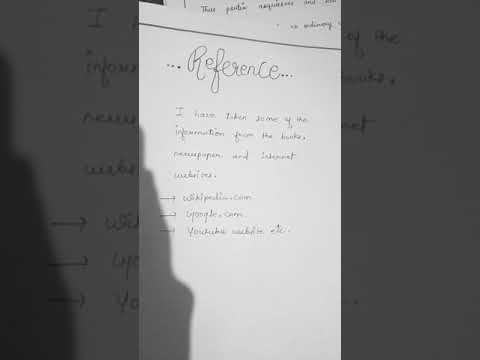 Thus
requires and
no ordinary
... Reference...
I have taken some of the
information from the books,
newspaper and internet
websites.
→ Wikipedia.com
→ Google.com
→ Youtube website etc.